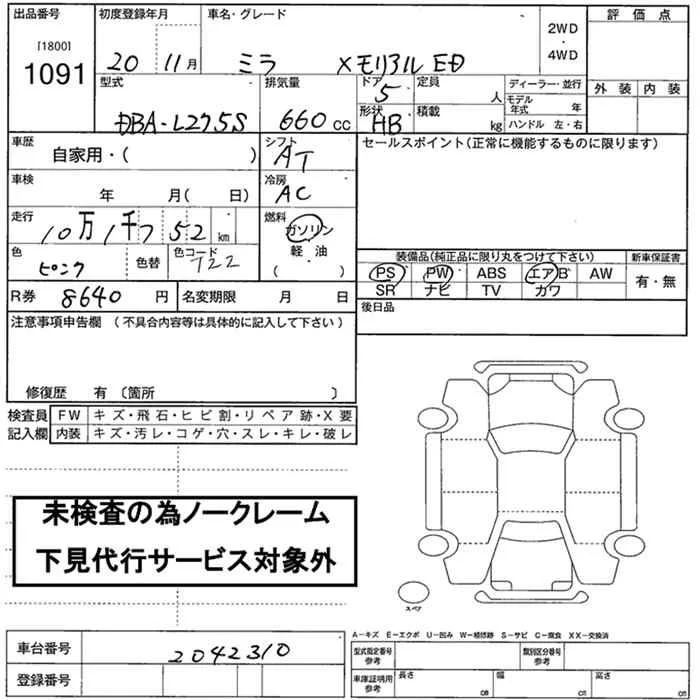 出品番号
[1800]
1091
初度登録年月
20 11月
車名・グレード
ミラ XメモリアルED
2WD
・
4WD
評価点
外装 内装
型式
DBA-L275S
排気量
660cc
ドア
5
形状
HB
定員
人
積載
kg
ディーラー・並行
モデル年式 年
ハンドル 左・右
車歴
自家用・( )
シフト
AT
セールスポイント(正常に機能するものに限ります)
車検
年 月( 日)
冷房
AC
走行
10万1千752km
燃料
ガソリン
軽油
( )
色
ピンク
色替
色コード
T22
装備品(純正品に限り丸をつけて下さい)
PS PW ABS エアB AW
SR ナビ TV カワ
新車保証書
有・無
R券 8640円
名変期限 月 日
後日品
注意事項申告欄 (不具合内容等は具体的に記入して下さい)
修復歴 有 〔箇所 〕
検査員記入欄
FW キズ・飛石・ヒビ割・リペア跡・X要
内装 キズ・汚レ・コゲ・穴・スレ・キレ・破レ
未検査の為ノークレーム
下見代行サービス対象外
スペア
車台番号 2042310
登録番号
A-キズ E-エクボ U-凹み W-補修跡 S-サビ C-腐食 XX-交換済
型式指定番号参考
類別区分番号参考
車庫証明用参考
長さ cm
幅 cm
高さ cm